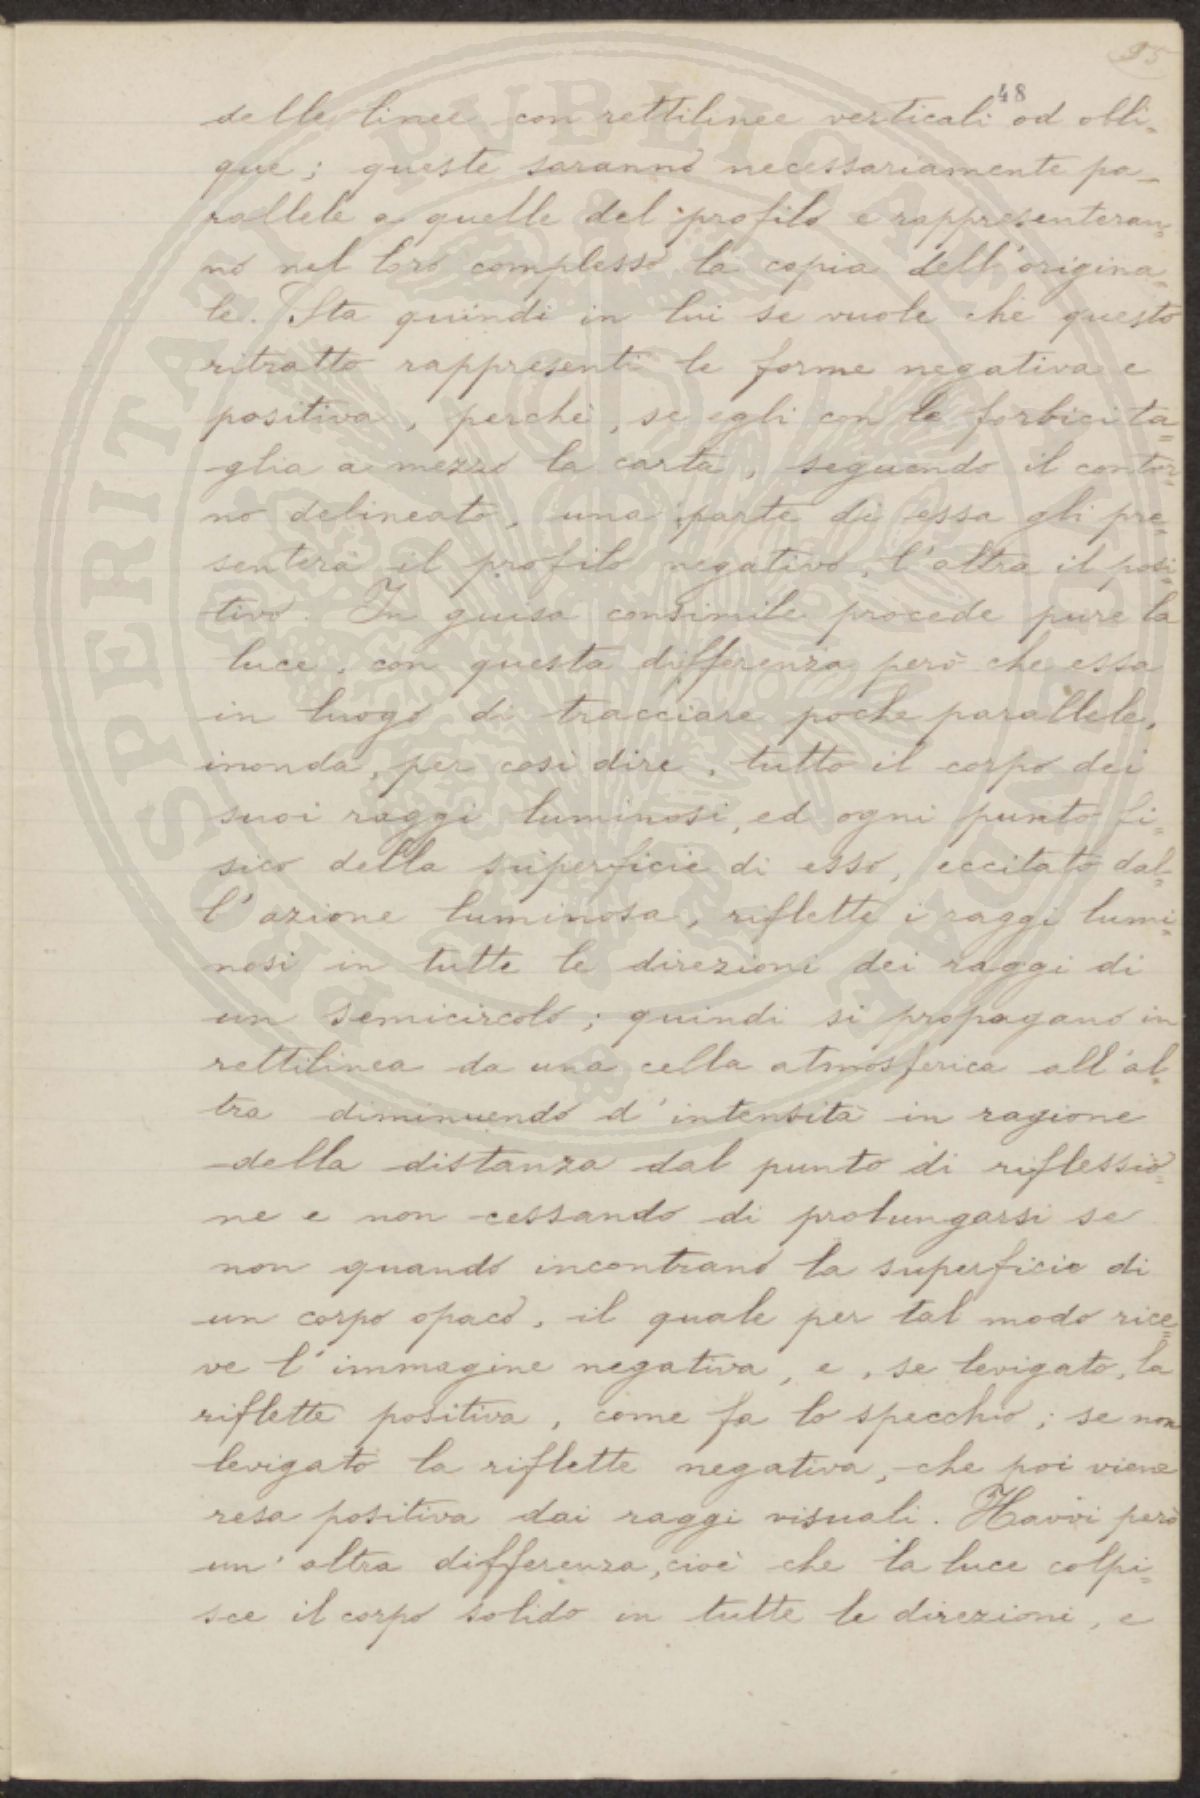 95
48
delle linee con rettilinee verticali od obli-
que; queste saranno necessariamente pa-
rallele a quelle del profilo e rappresenteran=
no nel loro complesso la copia dell'origina=
le. Sta quindi in lui se vuole che questo
ritratto rappresenti le forme negativa e
positiva, perchè, se egli con le forbici ta=
glia a mezzo la carta, seguendo il contor=
no delineato, una parte di essa gli pre=
senterà il profilo negativo, l'altra il posi=
tivo. In guisa consimile procede pure la
luce, con questa differenza però che essa
in luogo di tracciare poche parallele,
inonda, per così dire, tutto il corpo dei
suoi raggi luminosi, ed ogni punto fi=
sico della superficie di esso, eccitato dal=
l'azione luminosa, riflette i raggi lumi=
nosi in tutte le direzioni dei raggi di
un semicircolo; quindi si propagano in
rettilinea da una cella atmosferica all'al=
tra diminuendo d'intensità in ragione
della distanza dal punto di riflessio=
ne e non cessando di prolungarsi se
non quando incontrano la superficie di
un corpo opaco, il quale per tal modo rice=
ve l'immagine negativa, e, se levigato, la
riflette positiva, come fa lo specchio; se non
levigato la riflette negativa, che poi viene
resa positiva dai raggi visuali. Havvi però
un'altra differenza, cioè che la luce colpi=
sce il corpo solido in tutte le direzioni, e
PROSPERITATI PVBLICAE AVGENDAE